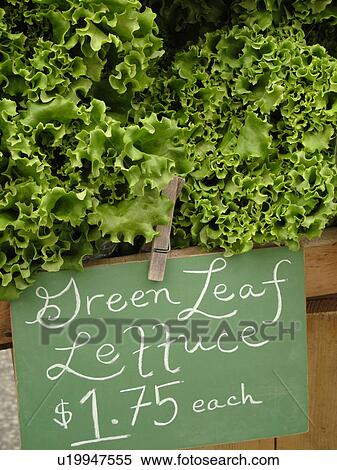 Green Leaf
Lettuce
$1.75 each
Fotosearch
u19947555 www.fotosearch.com